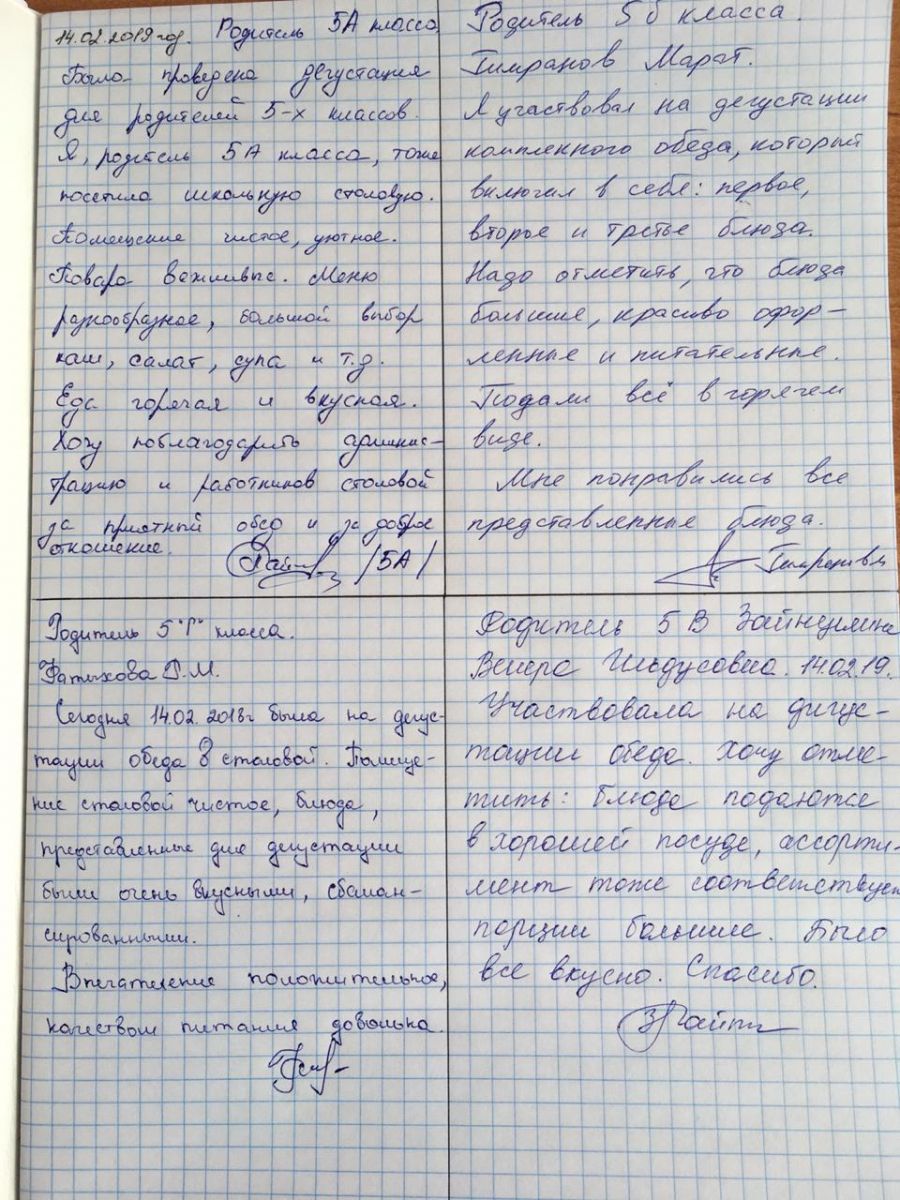 14.02.2019 год. Родитель 5А класса,
Была проведена дегустация
для родителей 5-х классов.
Я, родитель 5А класса, тоже
посетила школьную столовую.
Помещение чистое, уютное.
Повара вежливые. Меню
разнообразное, большой выбор
каш, салат, супа и т.д.
Еда горячая и вкусная.
Хочу поблагодарить админис-
трацию и работников столовой
за приятный обед и за доброе
отношение.
/5А/
Родитель 5б класса.
Гимранов Марат.
Я участвовал на дегустации
комплекного обеда, который
включал в себе: первое,
второе и третье блюда.
Надо отметить, что блюда
большие, красиво офор-
ленные и питательные.
Подали всё в горячем
виде.
Мне понравились все
представленные блюда.
Родитель 5"Г" класса.
Фатыхова Г.М.
Сегодня 14.02.2018г была на дегус-
тации обеда в столовой. Помеще-
ние столовой чистое, блюда,
представленные для дегустации
были очень вкусными, сбалан-
сированными.
Впечатление положительное,
качеством питания довольна.
Родитель 5В
Венера Ильдусовна. 14.02.19.
Участвовала на дигус-
тации обеда. Хочу отме-
тить: блюда подаются
в хорошей посуде, ассорти-
мент тоже соответствует
порции большие. Было
все вкусно. Спасибо.